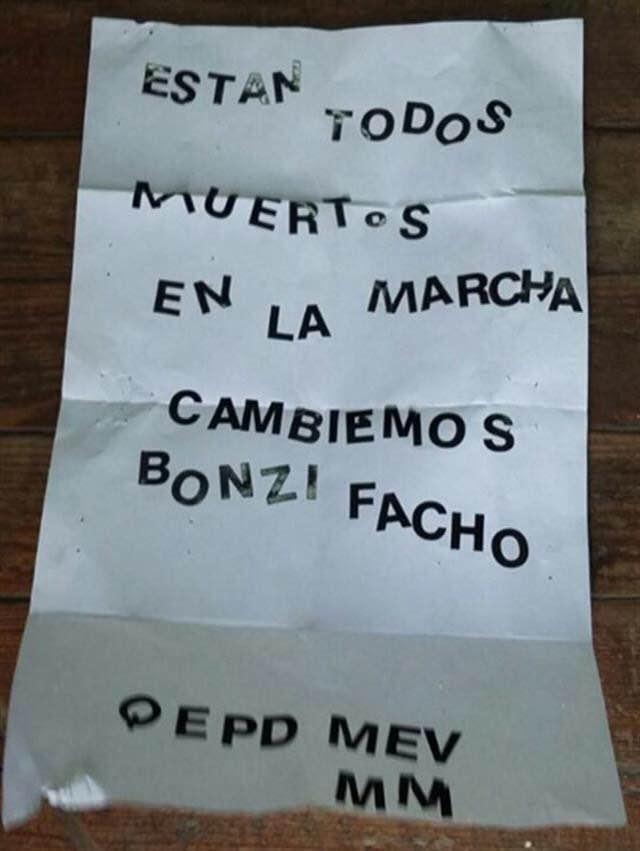 ESTAN TODOS
MUERTOS
EN LA MARCHA
CAMBIEMOS
BONZI FACHO
QEPD MEV
MM